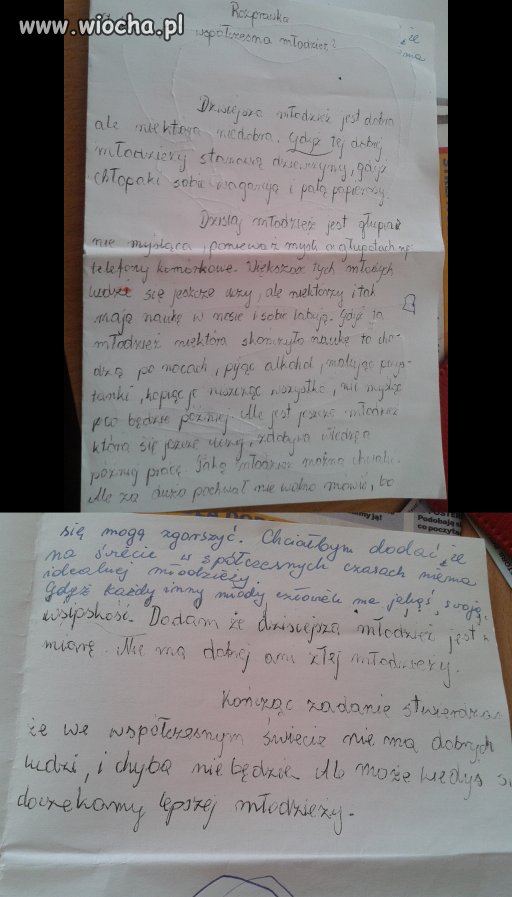 www.wiocha.pl
Rozprawka
współczesna młodzież?
że
Dzisiejsza młodzież jest dobra
ale niektóra niedobra. Gdyż tej dobrej
młodzieży stanowią dziewczyny, gdyż
chłopaki sobie wagarują i palą papierosy.
Dzisiaj młodzież jest głupia i
nie myśląca, ponieważ myśli o głupotach np
telefony komórkowe. Większość tych młodych
ludzi się jeszcze uczy, ale niektórzy i tak
mają naukę w nosie i sobie labują. Gdyż ta
młodzież niektóra skończyło naukę to cho-
dzą po nocach, pijąc alkohol, malując przys-
tanki, kopiąc je niszcząc wszystko, nie myśląc
pco będzie później. Ale jest jeszcze młodzież
która się jeszcze uczy, zdobywa wiedzę a
później pracę. Taką młodzież można chwalić.
Ale za dużo pochwał nie wolno mówić, bo
się mogą zgorszyć. Chciałbym dodać, że
na świecie w spółczesnych czasach niema
idealnej młodzieży.
Gdyż każdy inny młody człowiek ma jakąś, swoją,
wsipskość. Dodam że dzisiejsza młodzież jest
miarę. Nie ma dobrej ani złej młodzieży.
Kończąc zadanie stwierdzam
że we współczesnym świecie nie ma dobrych
ludzi, i chyba nie będzie. Ale może kiedyś
doczekamy lepszej młodzieży.